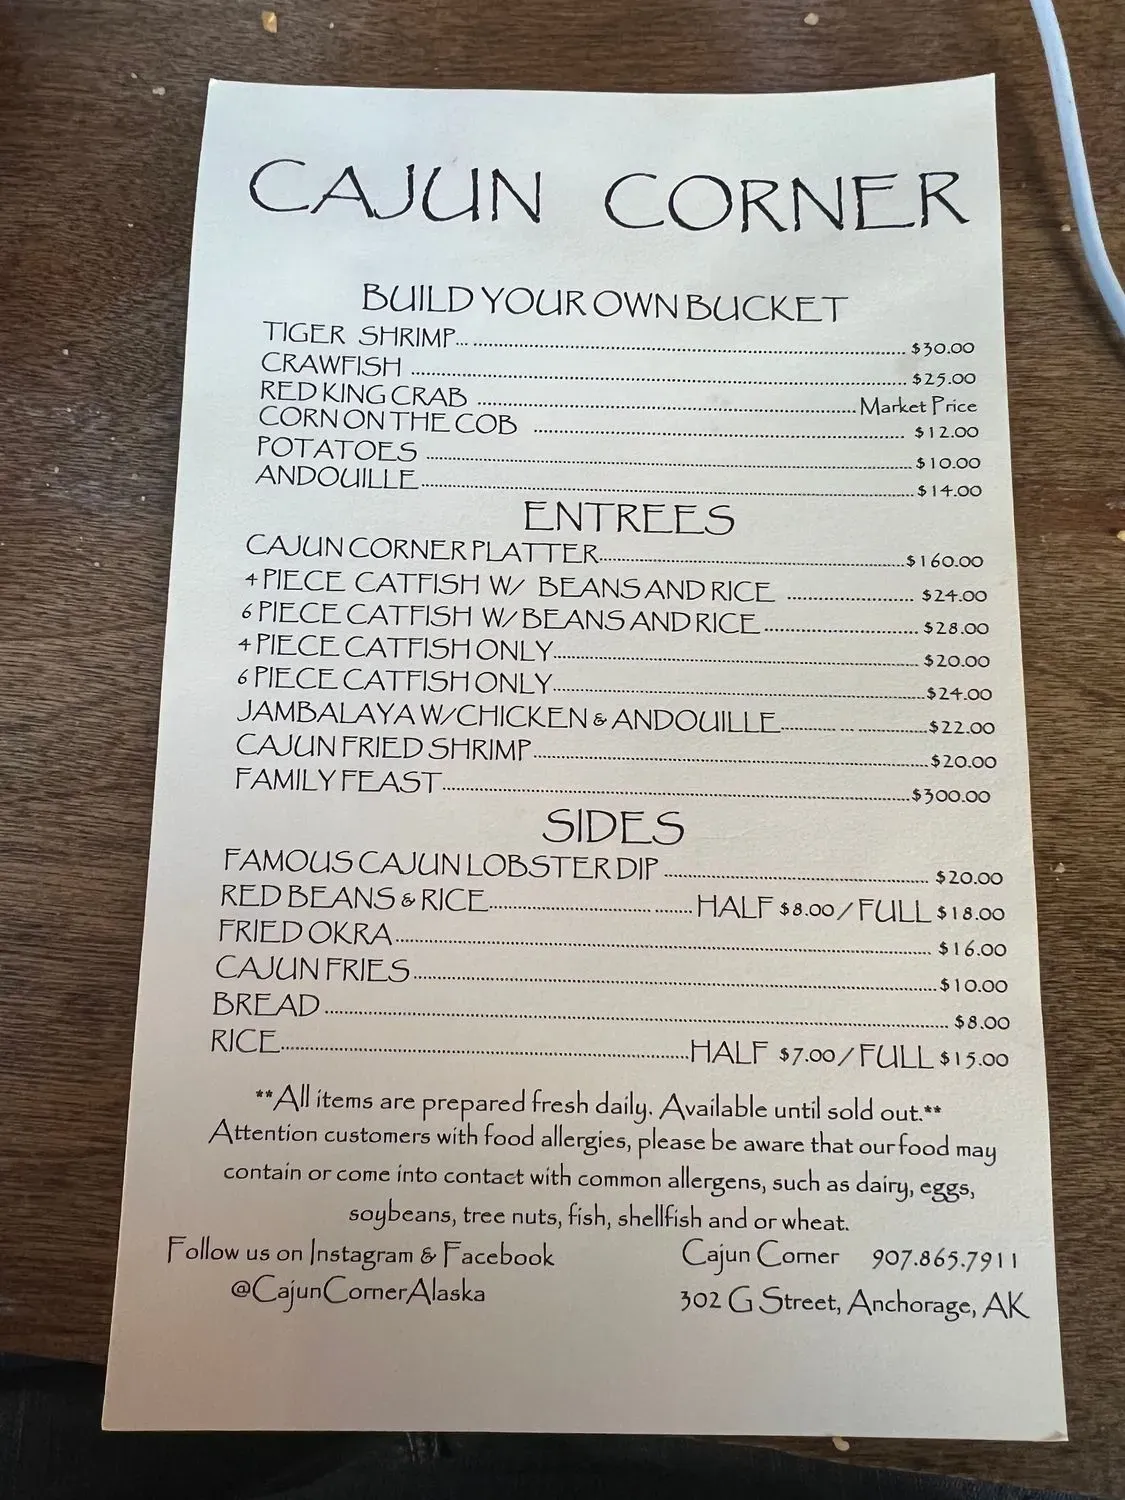 CAJUN CORNER
BUILD YOUR OWN BUCKET
TIGER SHRIMP... $30.00
CRAWFISH $25.00
RED KING CRAB Market Price
CORN ON THE COB $12.00
POTATOES $10.00
ANDOUILLE $14.00
ENTREES
CAJUN CORNER PLATTER $160.00
4 PIECE CATFISH W/ BEANS AND RICE $24.00
6 PIECE CATFISH W/ BEANS AND RICE $28.00
4 PIECE CATFISH ONLY $20.00
6 PIECE CATFISH ONLY $24.00
JAMBALAYA W/CHICKEN & ANDOUILLE $22.00
CAJUN FRIED SHRIMP $20.00
FAMILY FEAST $300.00
SIDES
FAMOUS CAJUN LOBSTER DIP $20.00
RED BEANS & RICE HALF $8.00 / FULL $18.00
FRIED OKRA $16.00
CAJUN FRIES $10.00
BREAD $8.00
RICE HALF $7.00 / FULL $15.00
**All items are prepared fresh daily. Available until sold out.**
Attention customers with food allergies, please be aware that our food may
contain or come into contact with common allergens, such as dairy, eggs,
soybeans, tree nuts, fish, shellfish and or wheat.
Follow us on Instagram & Facebook
@CajunCornerAlaska
Cajun Corner 907.865.7911
302 G Street, Anchorage, AK